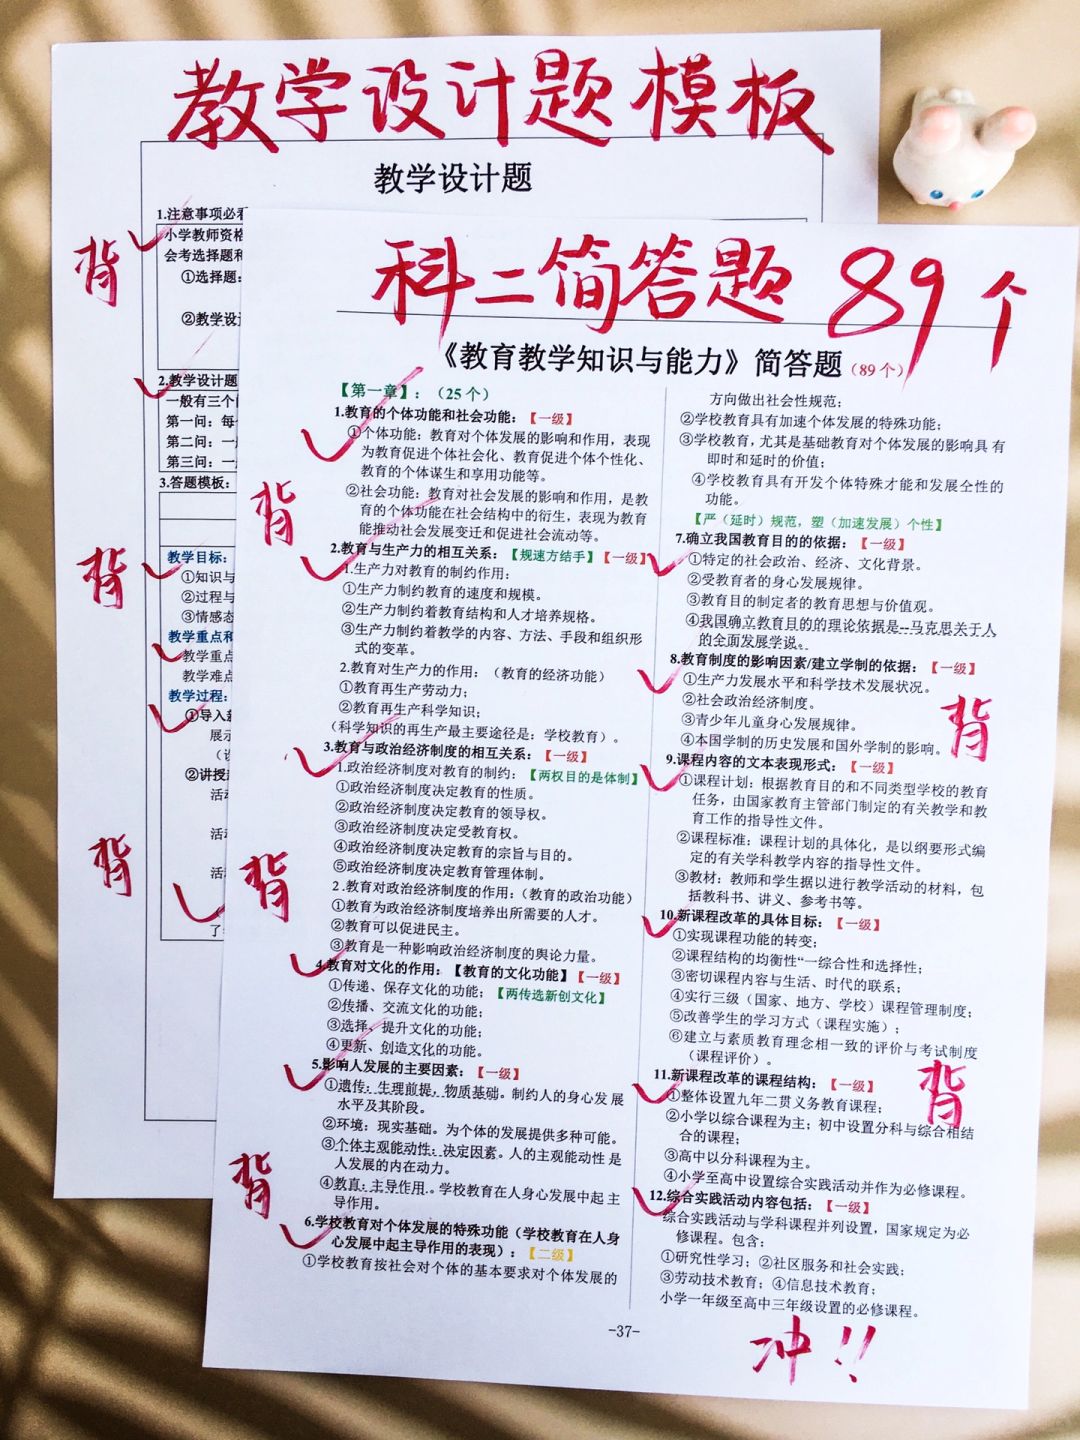 教学设计题模板
教学设计题
1.注意事项必看
小学教师资格
会考选择题和
①选择题:
②教学设计
2.教学设计题
一般有三个问
第一问: 每一
第二问: 一
第三问: 一
3.答题模板:
教学目标:
①知识与
②过程与
③情感态
教学重点和
教学重点
教学难点
教学过程:
①导入新
展示
②讲授
活动
活动
活动
背
背
背
科二简答题 89个
《教育教学知识与能力》简答题(89个)
【第一章】: (25个)
1.教育的个体功能和社会功能: 【一级】
①个体功能: 教育对个体发展的影响和作用, 表现
为教育促进个体社会化、教育促进个体个性化、
教育的个体谋生和享用功能等。
②社会功能: 教育对社会发展的影响和作用, 是教
育的个体功能在社会结构中的衍生, 表现为教育
能推动社会发展变迁和促进社会流动等。
2.教育与生产力的相互关系: 【规速方结手】【一级】
1.生产力对教育的制约作用:
①生产力制约教育的速度和规模。
②生产力制约着教育结构和人才培养规格。
③生产力制约着教学的内容、方法、手段和组织形
式的变革。
2.教育对生产力的作用: (教育的经济功能)
①教育再生产劳动力;
②教育再生产科学知识;
(科学知识的再生产最主要途径是: 学校教育)。
3.教育与政治经济制度的相互关系: 【一级】
1.政治经济制度对教育的制约: 【两权目的是体制】
①政治经济制度决定教育的性质。
②政治经济制度决定教育的领导权。
③政治经济制度决定受教育权。
④政治经济制度决定教育的宗旨与目的。
⑤政治经济制度决定教育管理体制。
2.教育对政治经济制度的作用: (教育的政治功能)
①教育为政治经济制度培养出所需要的人才。
②教育可以促进民主。
③教育是一种影响政治经济制度的舆论力量。
4.教育对文化的作用: 【教育的文化功能】【一级】
①传递、保存文化的功能; 【两传选新创文化】
②传播、交流文化的功能;
③选择、提升文化的功能;
④更新、创造文化的功能。
5.影响人发展的主要因素: 【一级】
①遗传: 生理前提, 物质基础。制约人的身心发展
水平及其阶段。
②环境: 现实基础。为个体的发展提供多种可能。
③个体主观能动性: 决定因素。人的主观能动性是
人发展的内在动力。
④教育: 主导作用。学校教育在人身心发展中起主
导作用。
6.学校教育对个体发展的特殊功能 (学校教育在人身
心发展中起主导作用的表现): 【二级】
①学校教育按社会对个体的基本要求对个体发展的
方向做出社会性规范;
②学校教育具有加速个体发展的特殊功能;
③学校教育, 尤其是基础教育对个体发展的影响具有
即时和延时的价值;
④学校教育具有开发个体特殊才能和发展个性的
功能。
【严(延时)规范, 塑(加速发展)个性】
7.确立我国教育目的的依据: 【一级】
①特定的社会政治、经济、文化背景。
②受教育者的身心发展规律。
③教育目的制定者的教育思想与价值观。
④我国确立教育目的的理论依据是--马克思关于人
的全面发展学说。
8.教育制度的影响因素/建立学制的依据: 【一级】
①生产力发展水平和科学技术发展状况。
②社会政治经济制度。
③青少年儿童身心发展规律。
④本国学制的历史发展和国外学制的影响。
9.课程内容的文本表现形式: 【一级】
①课程计划: 根据教育目的和不同类型学校的教育
任务, 由国家教育主管部门制定的有关教学和教
育工作的指导性文件。
②课程标准: 课程计划的具体化, 是以纲要形式编
定的有关学科教学内容的指导性文件。
③教材: 教师和学生据以进行教学活动的材料, 包
括教科书、讲义、参考书等。
10.新课程改革的具体目标: 【一级】
①实现课程功能的转变;
②课程结构的均衡性“一综合性和选择性;
③密切课程内容与生活、时代的联系;
④实行三级(国家、地方、学校)课程管理制度;
⑤改善学生的学习方式(课程实施);
⑥建立与素质教育理念相一致的评价与考试制度
(课程评价)。
11.新课程改革的课程结构: 【一级】
①整体设置九年二贯义务教育课程;
②小学以综合课程为主; 初中设置分科与综合相结
合的课程;
③高中以分科课程为主。
④小学至高中设置综合实践活动并作为必修课程。
12.综合实践活动内容包括: 【一级】
综合实践活动与学科课程并列设置, 国家规定为必
修课程。包含:
①研究性学习; ②社区服务和社会实践;
③劳动技术教育; ④信息技术教育;
小学一年级至高中三年级设置的必修课程。
背
背
背
背
背
-37-
冲!!